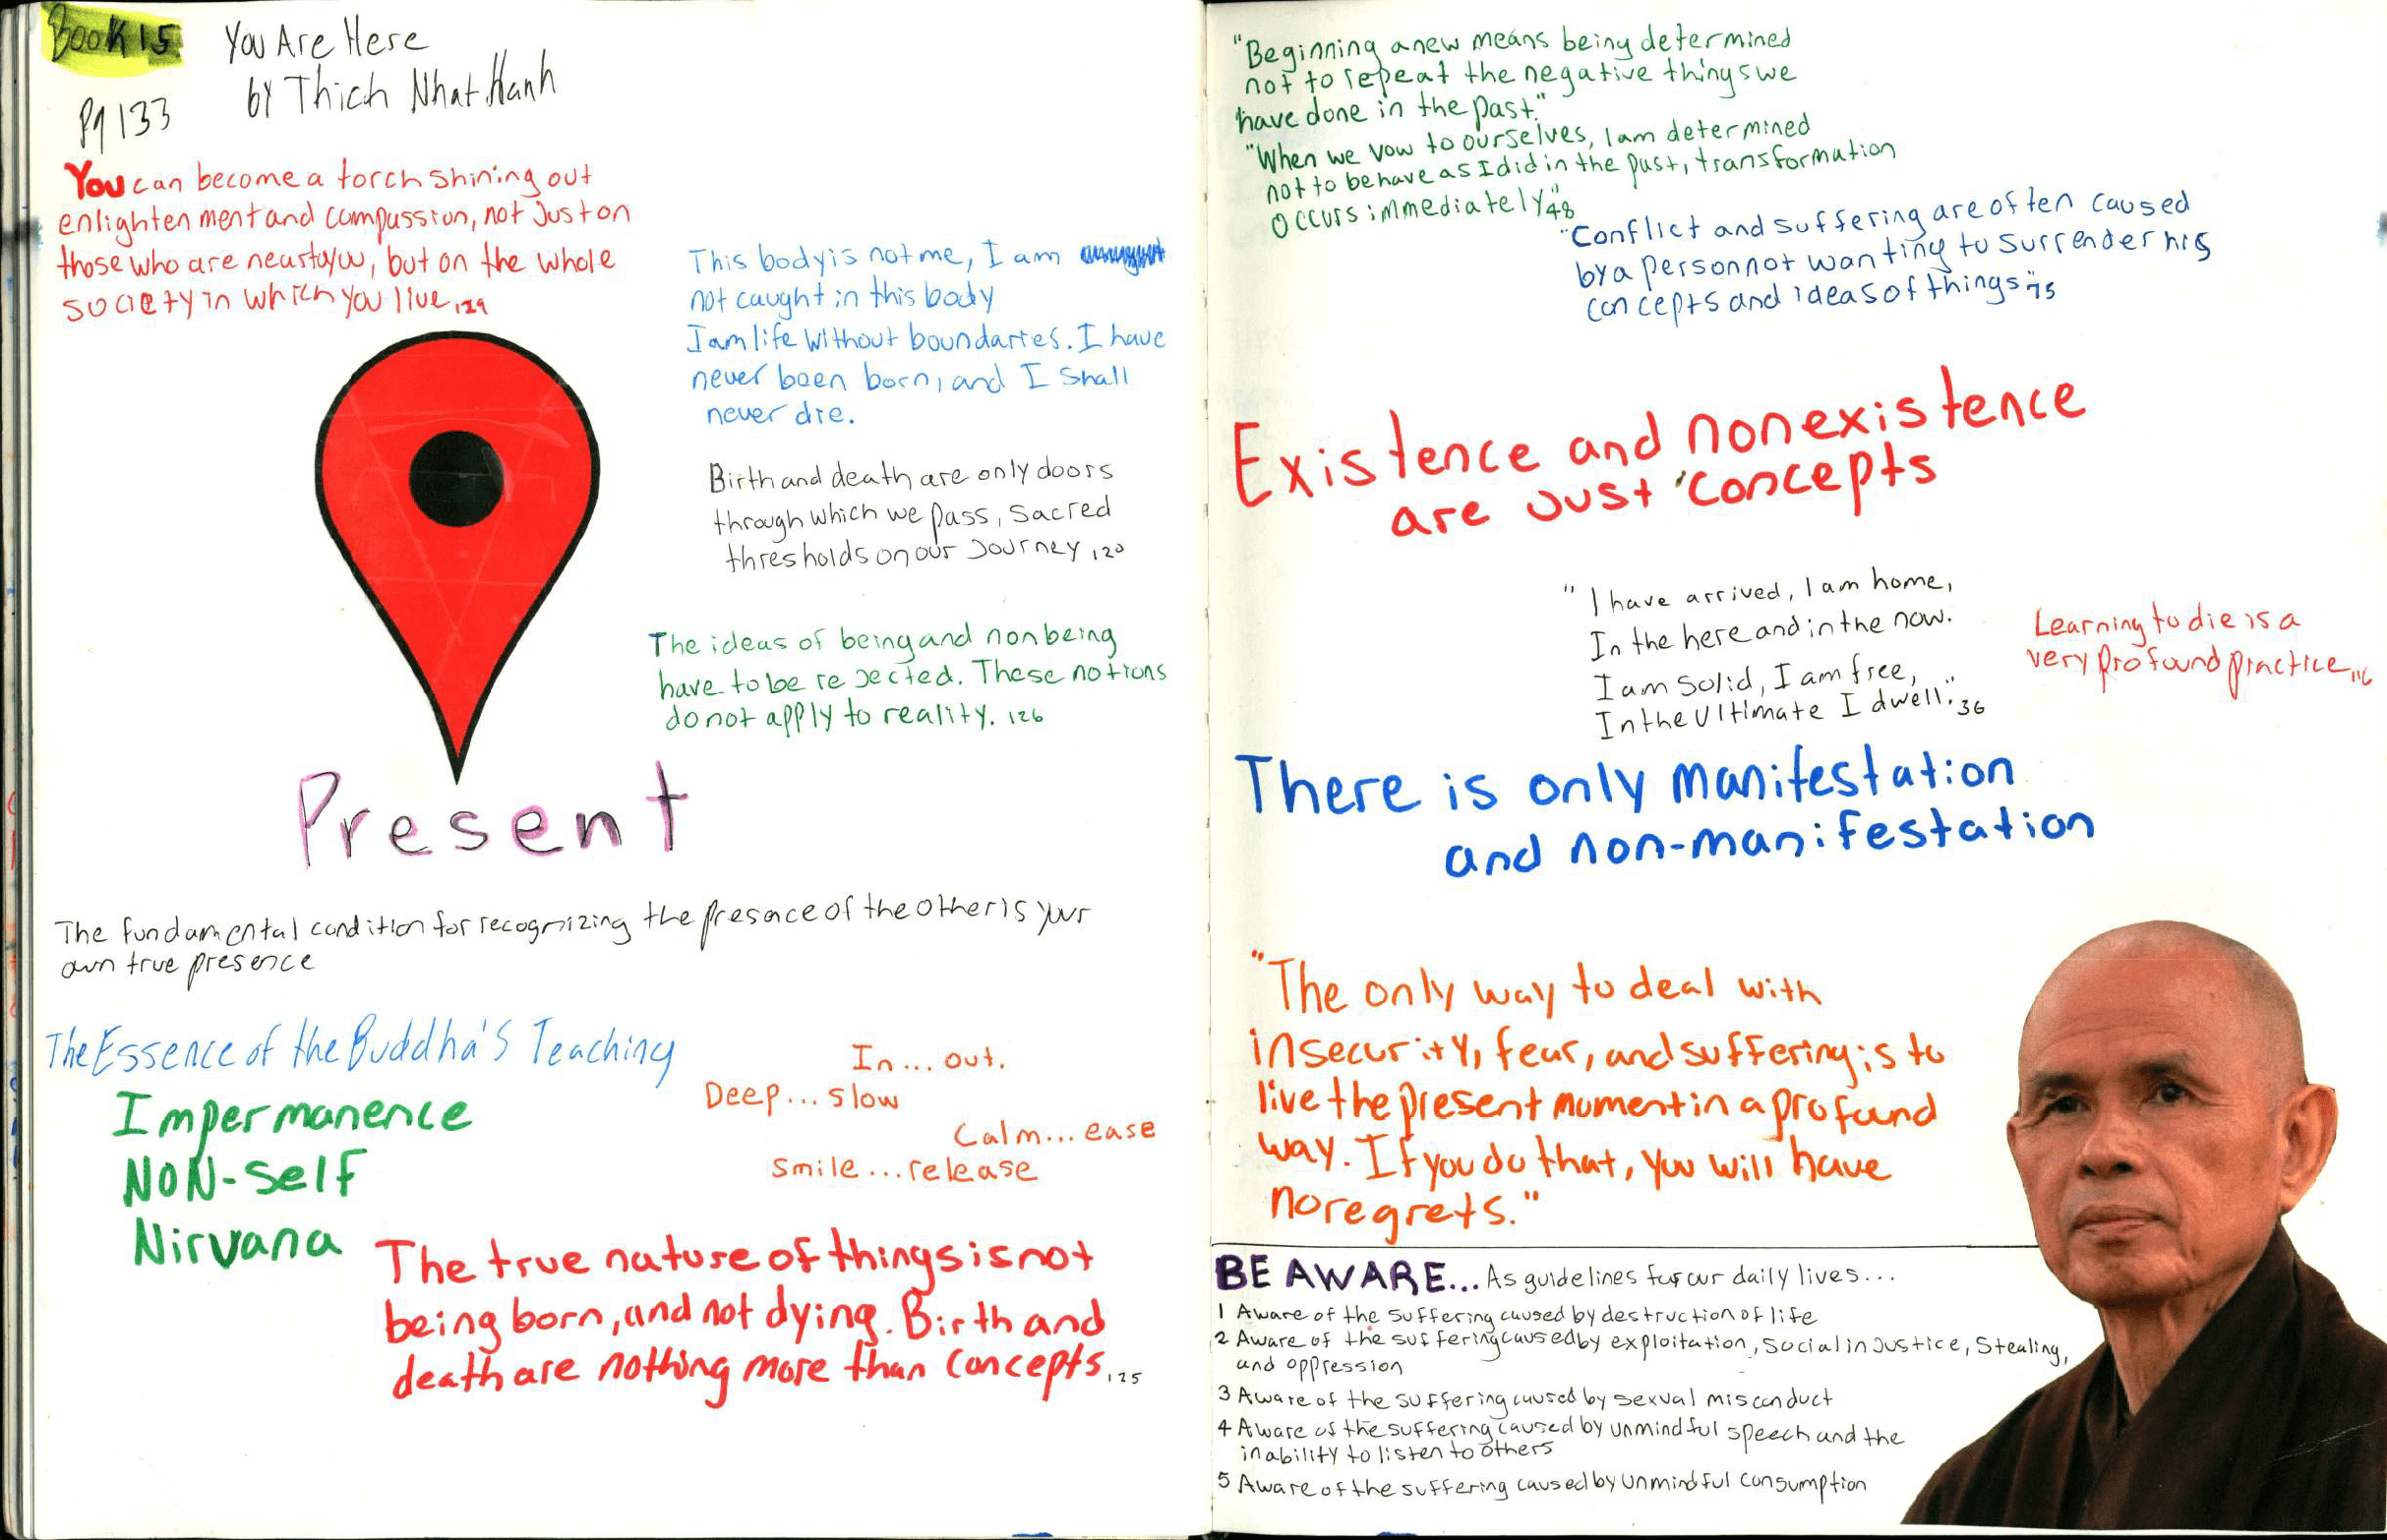 Book 15
You Are Here
by Thich Nhat Hanh
Pg 133
You can become a torch shining out
enlightenment and compassion, not just on
those who are near to you, but on the whole
society in which you live, 129
This body is not me, I am
not caught in this body
I am life without boundaries. I have
never been born, and I shall
never die.
Birth and death are only doors
through which we pass, sacred
thresholds on our Journey, 120
The ideas of being and nonbeing
have to be rejected. These notions
do not apply to reality. 126
Present
The fundamental condition for recognizing the presence of the other is your
own true presence
The Essence of the Buddha's Teaching
Impermanence
NON-self
Nirvana
In... out.
Deep... slow
Calm... ease
Smile... release
The true nature of things is not
being born, and not dying. Birth and
death are nothing more than concepts. 125
"Beginning anew means being determined
not to repeat the negative things we
have done in the past."
"When we vow to ourselves, I am determined
not to behave as I did in the past, transformation
occurs immediately" 48
"Conflict and suffering are often caused
by a person not wanting to surrender his
concepts and ideas of things" 75
Existence and nonexistence
are just concepts
"I have arrived, I am home,
In the here and in the now.
I am solid, I am free,
In the Ultimate I dwell." 36
Learning to die is a
very profound practice, 116
There is only manifestation
and non-manifestation
"The only way to deal with
insecurity, fear, and suffering is to
live the present moment in a profound
way. If you do that, you will have
no regrets."
BE AWARE... As guidelines for our daily lives...
1 Aware of the suffering caused by destruction of life
2 Aware of the suffering caused by exploitation, social injustice, stealing,
and oppression
3 Aware of the suffering caused by sexual misconduct
4 Aware of the suffering caused by unmindful speech and the
inability to listen to others
5 Aware of the suffering caused by unmindful consumption